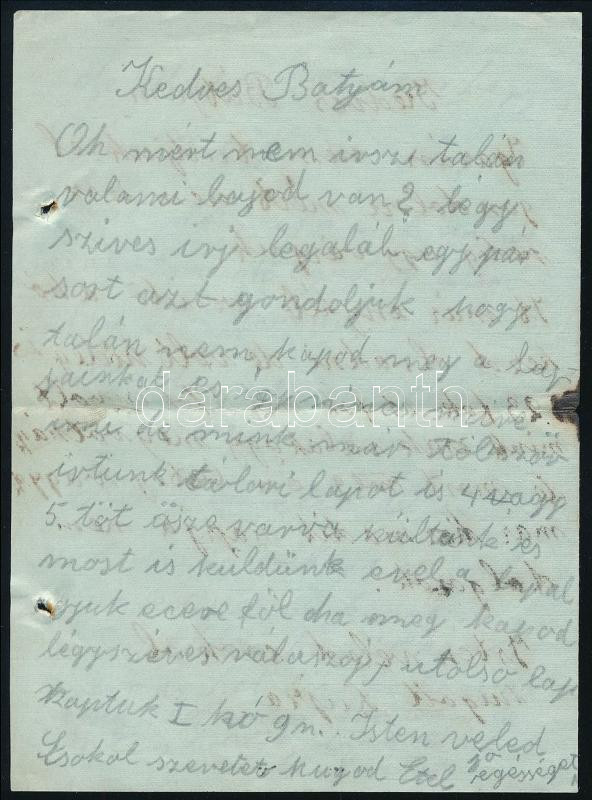 Kedves Batyám
Oh mért nem irsz talán
valami bajod van? légy
szives irj legaláb egy pár
sort azt gondoljuk hogy
talán nem kapod meg a lap-
jainkat es
irni de mink már többször
irtunk tábori lapot is 4 vagy
5. töt ösze varva kültünk es
most is küldünk evel a lapal
gyuk eceve föl ha meg kapod
légyszéves válaszolj utolso lap
kaptuk I hó 9n. Isten veled
Csokol szeretet hugod Etel jó
egésséget
darabanth.com